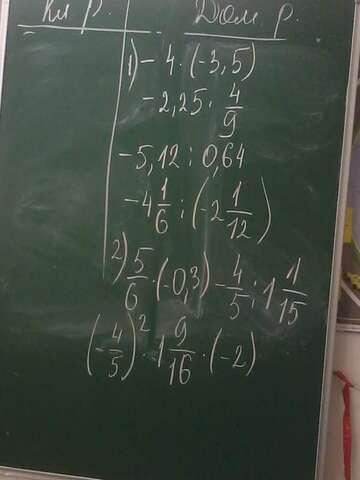 Кл р. Дом. р.
1) - 4 · (-3,5)
-2,25 · 4/9
-5,12 : 0,64
-4 1/6 : (-2 1/12)
2) 5/6 · (-0,3) - 4/5 : 1 1/15
(-4/5)² · 1 9/16 · (-2)